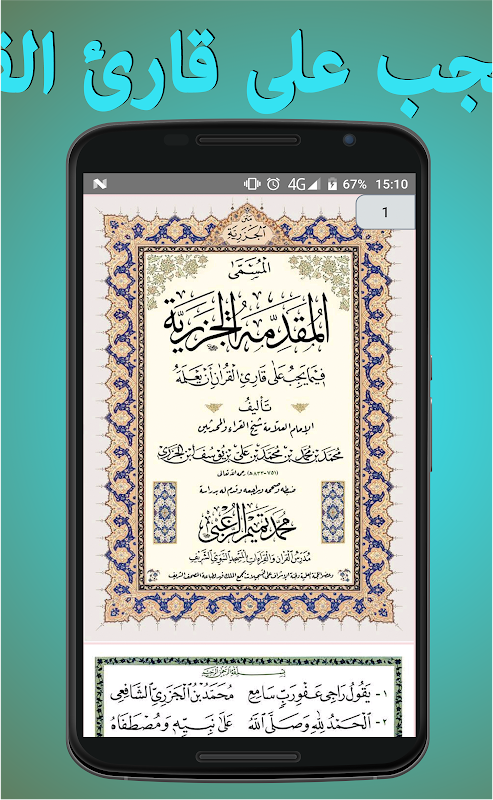 جب على قارئ الق
4G 67% 15:10
1
متن
الجزرية
المُسَمَّى
المُقَدِّمَةُ الجَزَرِيَّة
فِيمَا يَجِبُ عَلَى قَارِئِ القُرْآنِ أَنْ يَعْلَمَهُ
تَأليفُ
الإمام العلّامة شيخ القراء والمحدثين
محمد بن محمد بن محمد بن علي بن يوسف ابن الجزري
(٧٥١-٨٣٣هـ) رحمه الله تعالى
ضبطه وصححه وراجعه وقدم له بدراسة
محمد تميم الزعبي
مدرس القرآن والقراءات بالمسجد النبوي الشريف
بِسْمِ اللَّهِ الرَّحْمَنِ الرَّحِيمِ
١- يَقُولُ رَاجِي عَفْوِ رَبٍّ سَامِعِ مُحَمَّدُ بْنُ الْجَزَرِيِّ الشَّافِعِي
٢- اَلْحَمْدُ لِلَّهِ وَصَلَّى اللَّهُ عَلَى نَبِيِّهِ وَمُصْطَفَاهُ